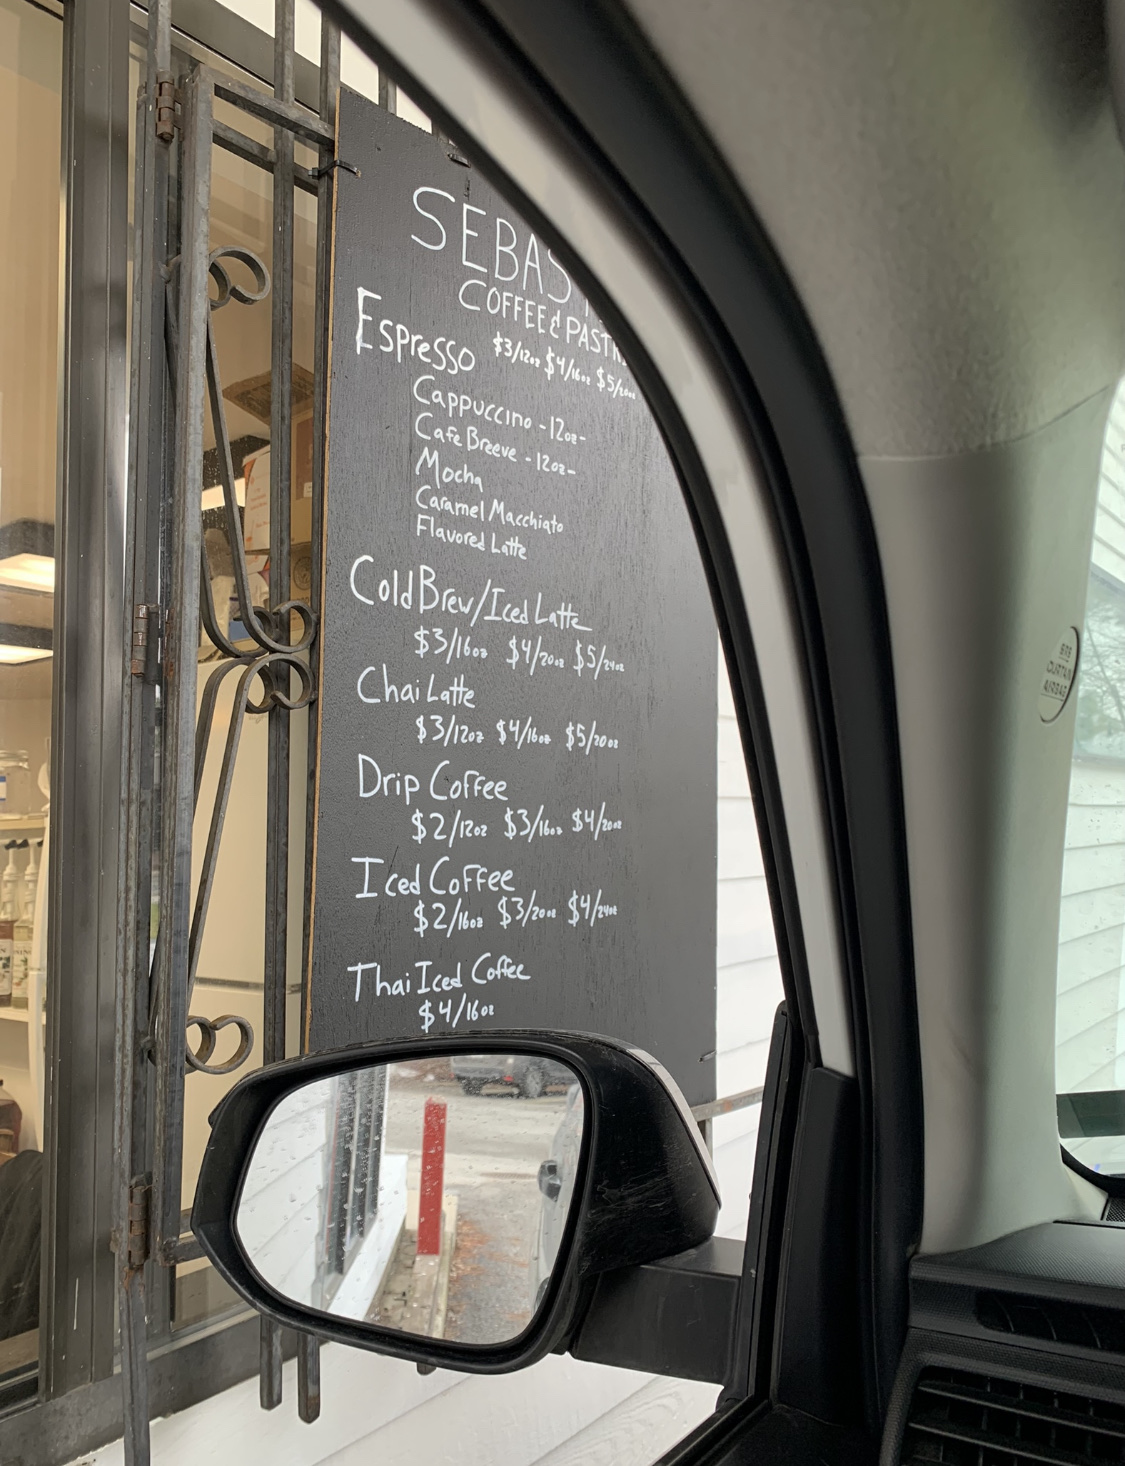 SEBAS
COFFEE & PAST
Espresso $3/12oz $4/16oz $5/20oz
Cappuccino -12oz-
Cafe Breeve -12oz-
Mocha
Caramel Macchiato
Flavored Latte
Cold Brew/Iced Latte
$3/16oz $4/20oz $5/24oz
Chai Latte
$3/12oz $4/16oz $5/20oz
Drip Coffee
$2/12oz $3/16oz $4/20oz
Iced Coffee
$2/16oz $3/20oz $4/24oz
Thai Iced Coffee
$4/16oz
SRS
CURTAIN
AIRBAG